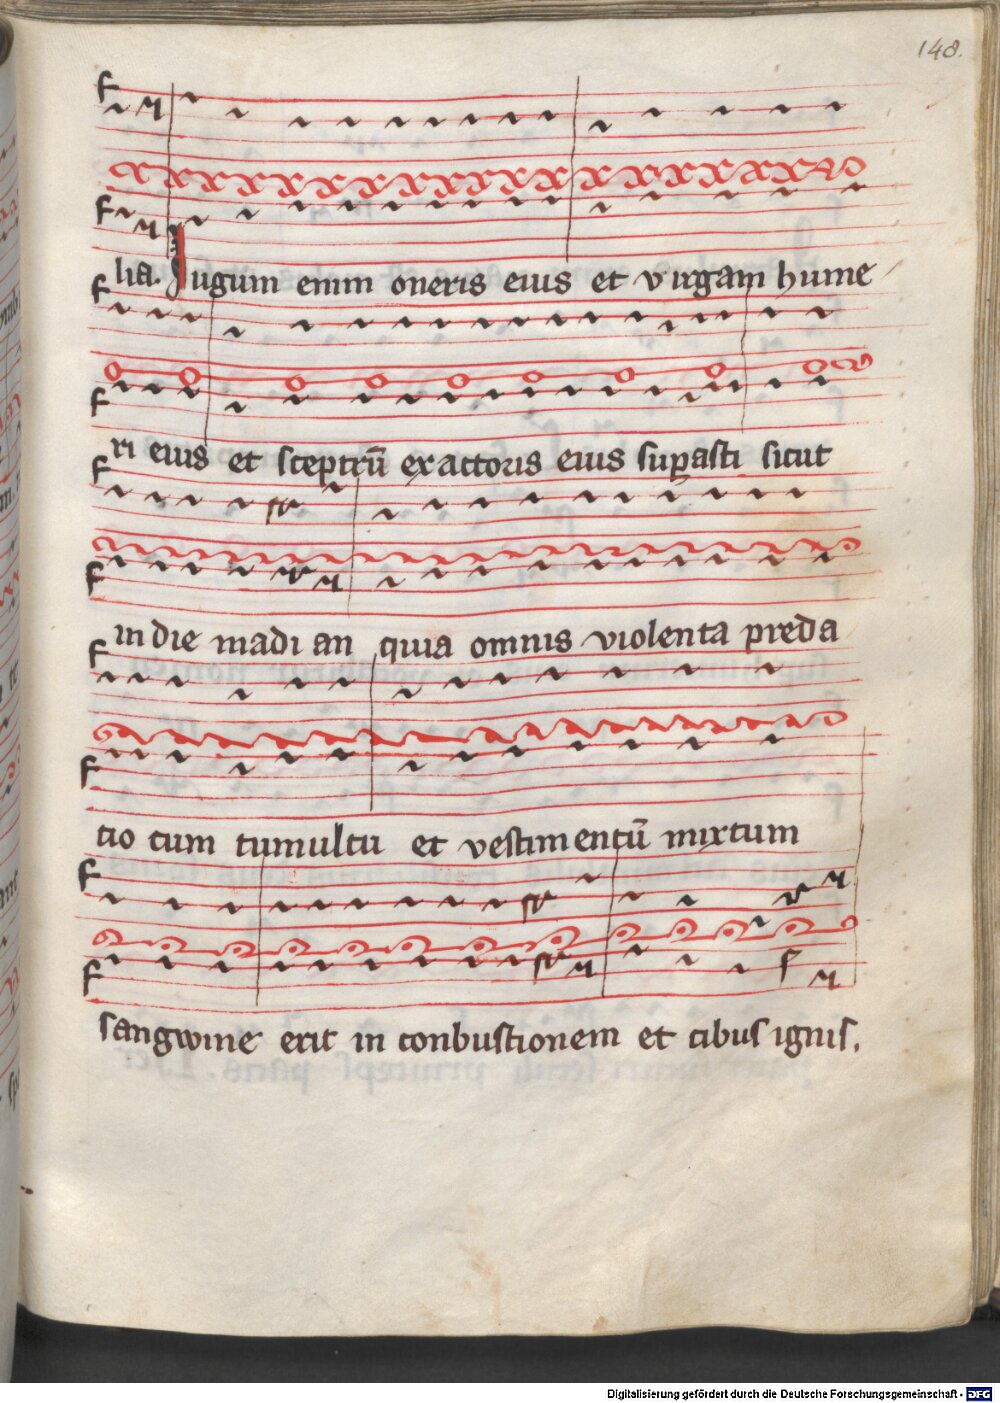 148.
lia. Iugum enim oneris eius et virgam hume
ri eius et sceptrū exactoris eius suꝑasti sicut
in die madian quia omnis violenta preda
tio cum tumultu et vestimentū mixtum
sangwine erit in conbustionem et cibus ignis.
Digitalisierung gefördert durch die Deutsche Forschungsgemeinschaft - DFG